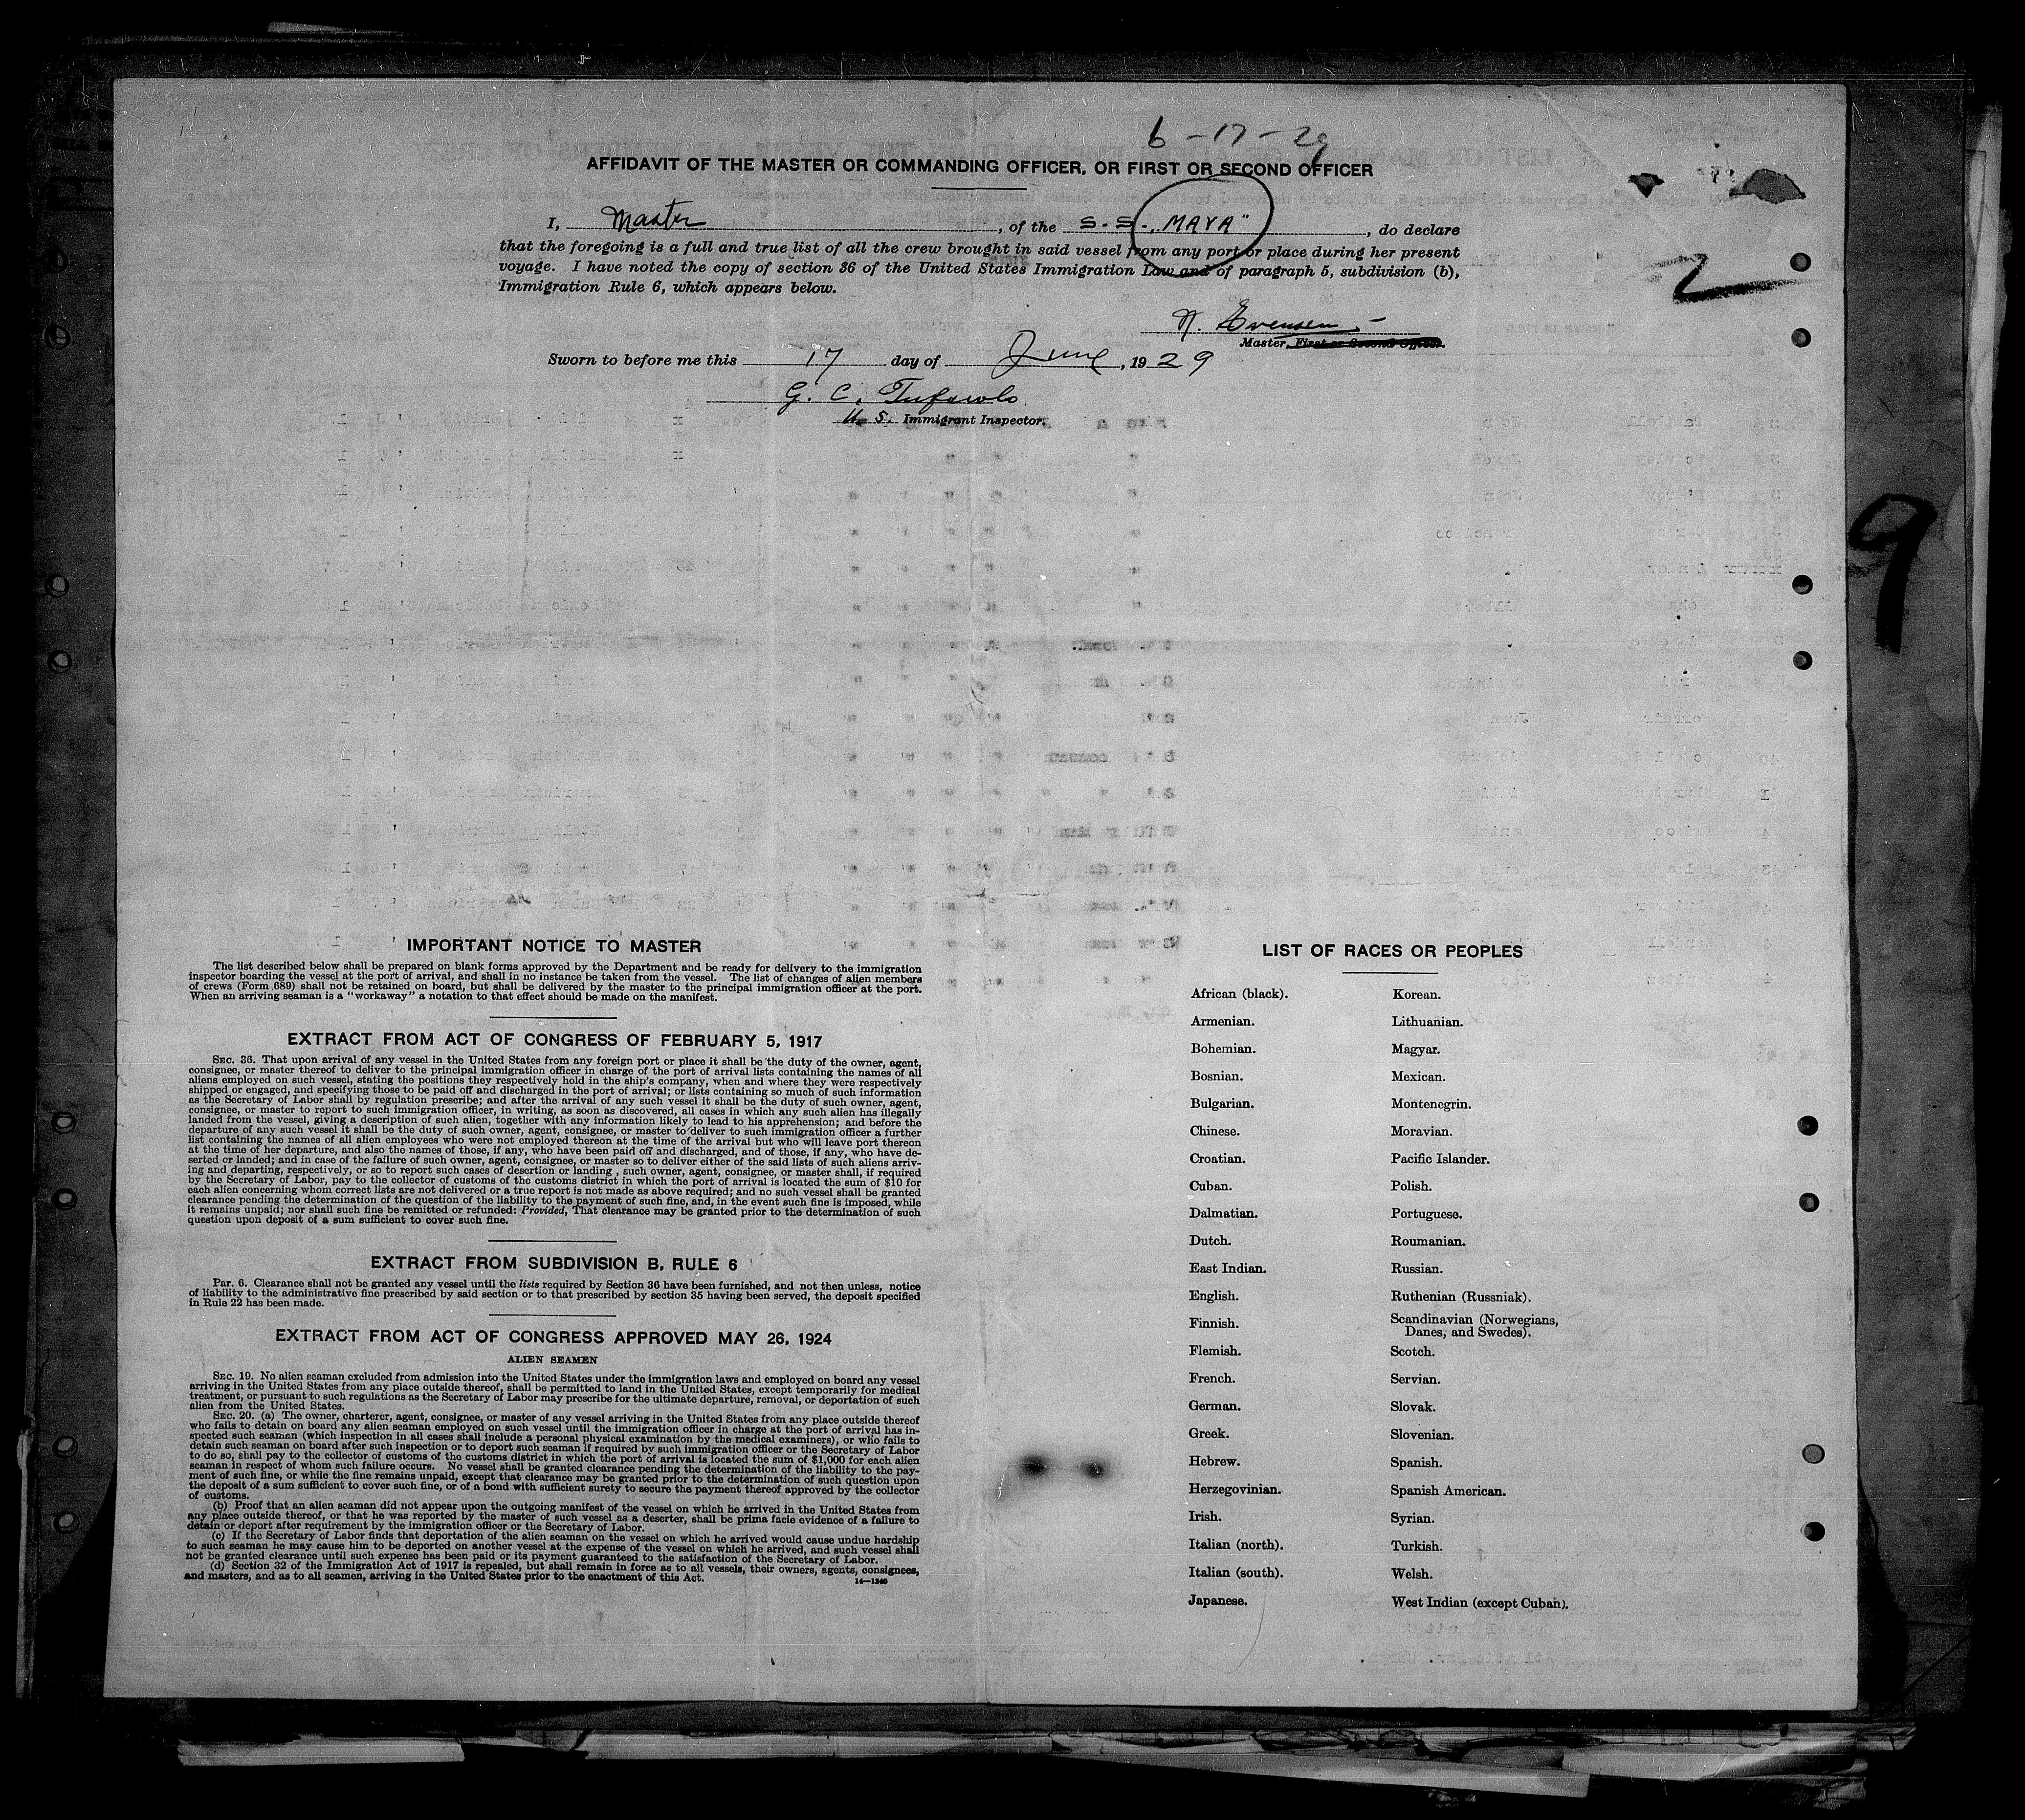 6-17-29
AFFIDAVIT OF THE MASTER OR COMMANDING OFFICER, OR FIRST OR SECOND OFFICER
I, Master, of the S.S. "MAYA", do declare
that the foregoing is a full and true list of all the crew brought in said vessel from any port or place during her present
voyage. I have noted the copy of section 36 of the United States Immigration Law and of paragraph 5, subdivision (b),
Immigration Rule 6, which appears below.
N. Evensen
Master, First or Second Officer.
Sworn to before me this 17 day of June, 1929
G. C.
U. S. Immigrant Inspector.
2
9
IMPORTANT NOTICE TO MASTER
The list described below shall be prepared on blank forms approved by the Department and be ready for delivery to the immigration
inspector boarding the vessel at the port of arrival, and shall in no instance be taken from the vessel. The list of changes of alien members
of crews (Form 689) shall not be retained on board, but shall be delivered by the master to the principal immigration officer at the port.
When an arriving seaman is a "workaway" a notation to that effect should be made on the manifest.
EXTRACT FROM ACT OF CONGRESS OF FEBRUARY 5, 1917
SEC. 36. That upon arrival of any vessel in the United States from any foreign port or place it shall be the duty of the owner, agent,
consignee, or master thereof to deliver to the principal immigration officer in charge of the port of arrival lists containing the names of all
aliens employed on such vessel, stating the positions they respectively hold in the ship's company, when and where they were respectively
shipped or engaged, and specifying those to be paid off and discharged in the port of arrival; or lists containing so much of such information
as the Secretary of Labor shall by regulation prescribe; and after the arrival of any such vessel it shall be the duty of such owner, agent,
consignee, or master to report to such immigration officer, in writing, as soon as discovered, all cases in which any such alien has illegally
landed from the vessel, giving a description of such alien, together with any information likely to lead to his apprehension; and before the
departure of any such vessel it shall be the duty of such owner, agent, consignee, or master to deliver to such immigration officer a further
list containing the names of all alien employees who were not employed thereon at the time of the arrival but who will leave port thereon
at the time of her departure, and also the names of those, if any, who have been paid off and discharged, and of those, if any, who have de-
serted or landed; and in case of the failure of such owner, agent, consignee, or master so to deliver either of the said lists of such aliens arriv-
ing and departing, respectively, or so to report such cases of desertion or landing, such owner, agent, consignee, or master shall, if required
by the Secretary of Labor, pay to the collector of customs of the customs district in which the port of arrival is located the sum of $10 for
each alien concerning whom correct lists are not delivered or a true report is not made as above required; and no such vessel shall be granted
clearance pending the determination of the question of the liability to the payment of such fine, and, in the event such fine is imposed, while
it remains unpaid; nor shall such fine be remitted or refunded: Provided, That clearance may be granted prior to the determination of such
question upon deposit of a sum sufficient to cover such fine.
EXTRACT FROM SUBDIVISION B, RULE 6
Par. 6. Clearance shall not be granted any vessel until the lists required by Section 36 have been furnished, and not then unless, notice
of liability to the administrative fine prescribed by said section or to that prescribed by section 35 having been served, the deposit specified
in Rule 22 has been made.
EXTRACT FROM ACT OF CONGRESS APPROVED MAY 26, 1924
ALIEN SEAMEN
SEC. 19. No alien seaman excluded from admission into the United States under the immigration laws and employed on board any vessel
arriving in the United States from any place outside thereof, shall be permitted to land in the United States, except temporarily for medical
treatment, or pursuant to such regulations as the Secretary of Labor may prescribe for the ultimate departure, removal, or deportation of such
alien from the United States.
SEC. 20. (a) The owner, charterer, agent, consignee, or master of any vessel arriving in the United States from any place outside thereof
who fails to detain on board any alien seaman employed on such vessel until the immigration officer in charge at the port of arrival has in-
spected such seaman (which inspection in all cases shall include a personal physical examination by the medical examiners), or who fails to
detain such seaman on board after such inspection or to deport such seaman if required by such immigration officer or the Secretary of Labor
to do so, shall pay to the collector of customs of the customs district in which the port of arrival is located the sum of $1,000 for each alien
seaman in respect of whom such failure occurs. No vessel shall be granted clearance pending the determination of the liability to the pay-
ment of such fine, or while the fine remains unpaid, except that clearance may be granted prior to the determination of such question upon
the deposit of a sum sufficient to cover such fine, or of a bond with sufficient surety to secure the payment thereof approved by the collector
of customs.
(b) Proof that an alien seaman did not appear upon the outgoing manifest of the vessel on which he arrived in the United States from
any place outside thereof, or that he was reported by the master of such vessel as a deserter, shall be prima facie evidence of a failure to
detain or deport after requirement by the immigration officer or the Secretary of Labor.
(c) If the Secretary of Labor finds that deportation of the alien seaman on the vessel on which he arrived would cause undue hardship
to such seaman he may cause him to be deported on another vessel at the expense of the vessel on which he arrived, and such vessel shall
not be granted clearance until such expense has been paid or its payment guaranteed to the satisfaction of the Secretary of Labor.
(d) Section 32 of the Immigration Act of 1917 is repealed, but shall remain in force as to all vessels, their owners, agents, consignees,
and masters, and as to all seamen, arriving in the United States prior to the enactment of this Act.
14—1240
LIST OF RACES OR PEOPLES
African (black).
Armenian.
Bohemian.
Bosnian.
Bulgarian.
Chinese.
Croatian.
Cuban.
Dalmatian.
Dutch.
East Indian.
English.
Finnish.
Flemish.
French.
German.
Greek.
Hebrew.
Herzegovinian.
Irish.
Italian (north).
Italian (south).
Japanese.
Korean.
Lithuanian.
Magyar.
Mexican.
Montenegrin.
Moravian.
Pacific Islander.
Polish.
Portuguese.
Roumanian.
Russian.
Ruthenian (Russniak).
Scandinavian (Norwegians,
Danes, and Swedes).
Scotch.
Servian.
Slovak.
Slovenian.
Spanish.
Spanish American.
Syrian.
Turkish.
Welsh.
West Indian (except Cuban).